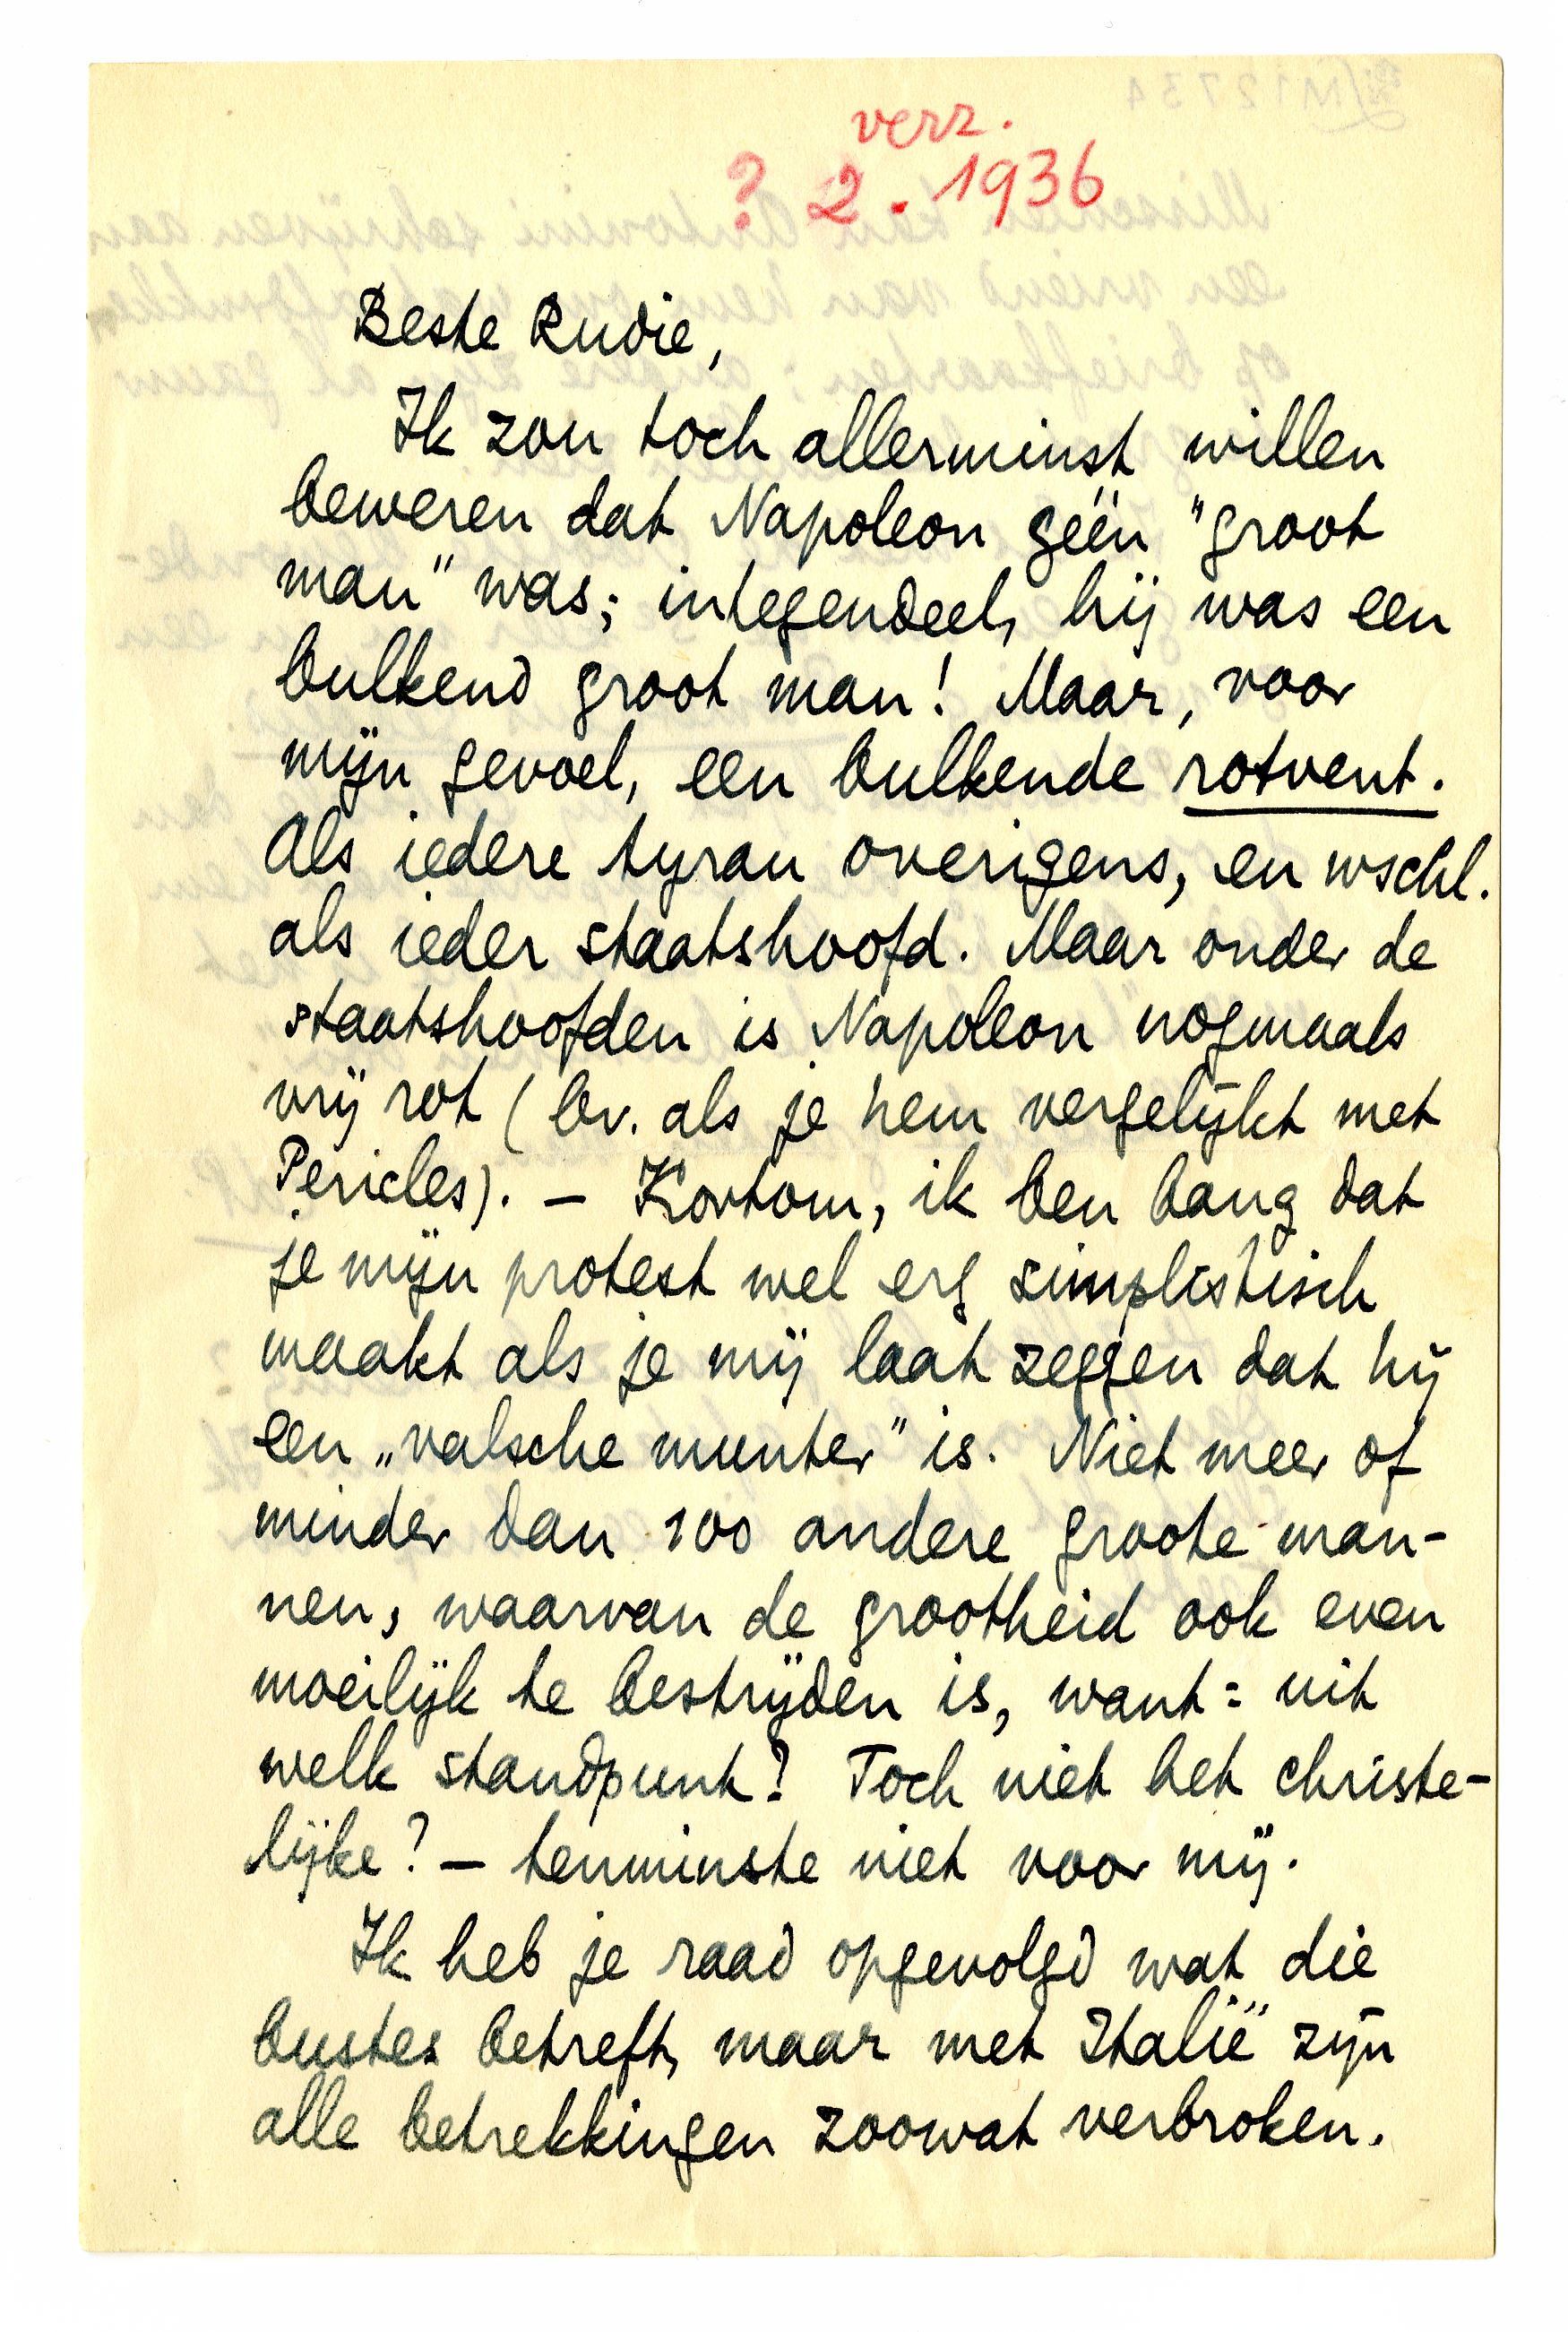 verz.
? 2. 1936
Beste Rudie,
Ik zou toch allerminst willen
beweren dat Napoleon géén "groot
man" was; integendeel, hij was een
bulkend groot man! Maar, voor
mijn gevoel, een bulkende rotvent.
Als iedere tyran overigens, en wschl.
als ieder staatshoofd. Maar onder de
staatshoofden is Napoleon nogmaals
vrij rot (bv. als je hem vergelijkt met
Pericles). — Kortom, ik ben bang dat
je mijn protest wel erg simplistisch
maakt als je mij laat zeggen dat hij
een „valsche munter" is. Niet meer of
minder dan 100 andere groote man-
nen, waarvan de grootheid ook even
moeilijk te bestrijden is, want: uit
welk standpunt? Toch niet het christe-
lijke? — tenminste niet voor mij.
Ik heb je raad opgevolgd wat die
bustes betreft, maar met Italië zijn
alle betrekkingen zoowat verbroken.